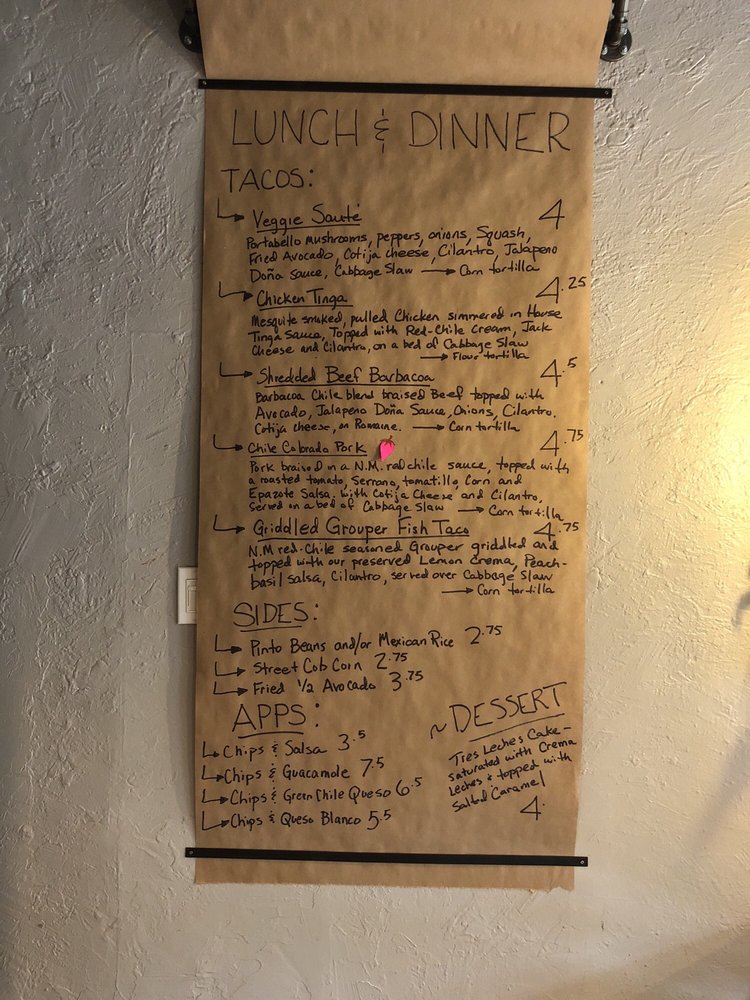 LUNCH & DINNER
TACOS:
Veggie Sauté 4
Portabello mushrooms, peppers, onions, Squash,
Fried Avocado, Cotija cheese, Cilantro, Jalapeno
Doña sauce, Cabbage Slaw → Corn tortilla
Chicken Tinga 4.25
Mesquite smoked, pulled Chicken simmered in House
Tinga Sauce, Topped with Red-Chile Cream, Jack
Cheese and Cilantro, on a bed of Cabbage Slaw
→ Flour tortilla
Shredded Beef Barbacoa 4.5
Barbacoa Chile blend braised Beef topped with
Avocado, Jalapeno Doña Sauce, Onions, Cilantro.
Cotija cheese, on Romaine. → Corn tortilla
Chile Cobrado Pork 4.75
Pork braised in a N.M. red chile sauce, topped with
a roasted tomato, Serrano, tomatillo, Corn and
Epazote Salsa. with Cotija Cheese and Cilantro,
Served on a bed of Cabbage Slaw → Corn tortilla
Griddled Grouper Fish Taco 4.75
N.M red-Chile seasoned Grouper griddled and
topped with our preserved Lemon Crema, Peach-
basil salsa, Cilantro, served over Cabbage Slaw
→ Corn tortilla
SIDES:
Pinto Beans and/or Mexican Rice 2.75
Street Cob Corn 2.75
Fried 1/2 Avocado 3.75
APPS:
Chips & Salsa 3.5
Chips & Guacamole 7.5
Chips & Green Chile Queso 6.5
Chips & Queso Blanco 5.5
~ DESSERT
Tres Leches Cake -
saturated with Crema
Leches & topped with
Salted Caramel
4.